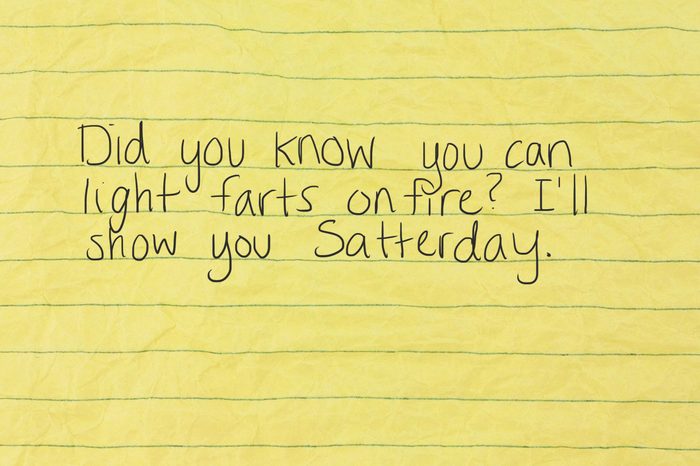 Did you know you can
light farts on fire? I'll
show you Satterday.